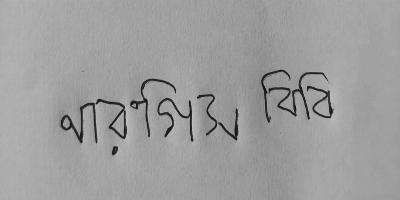 নারগিস বিবি